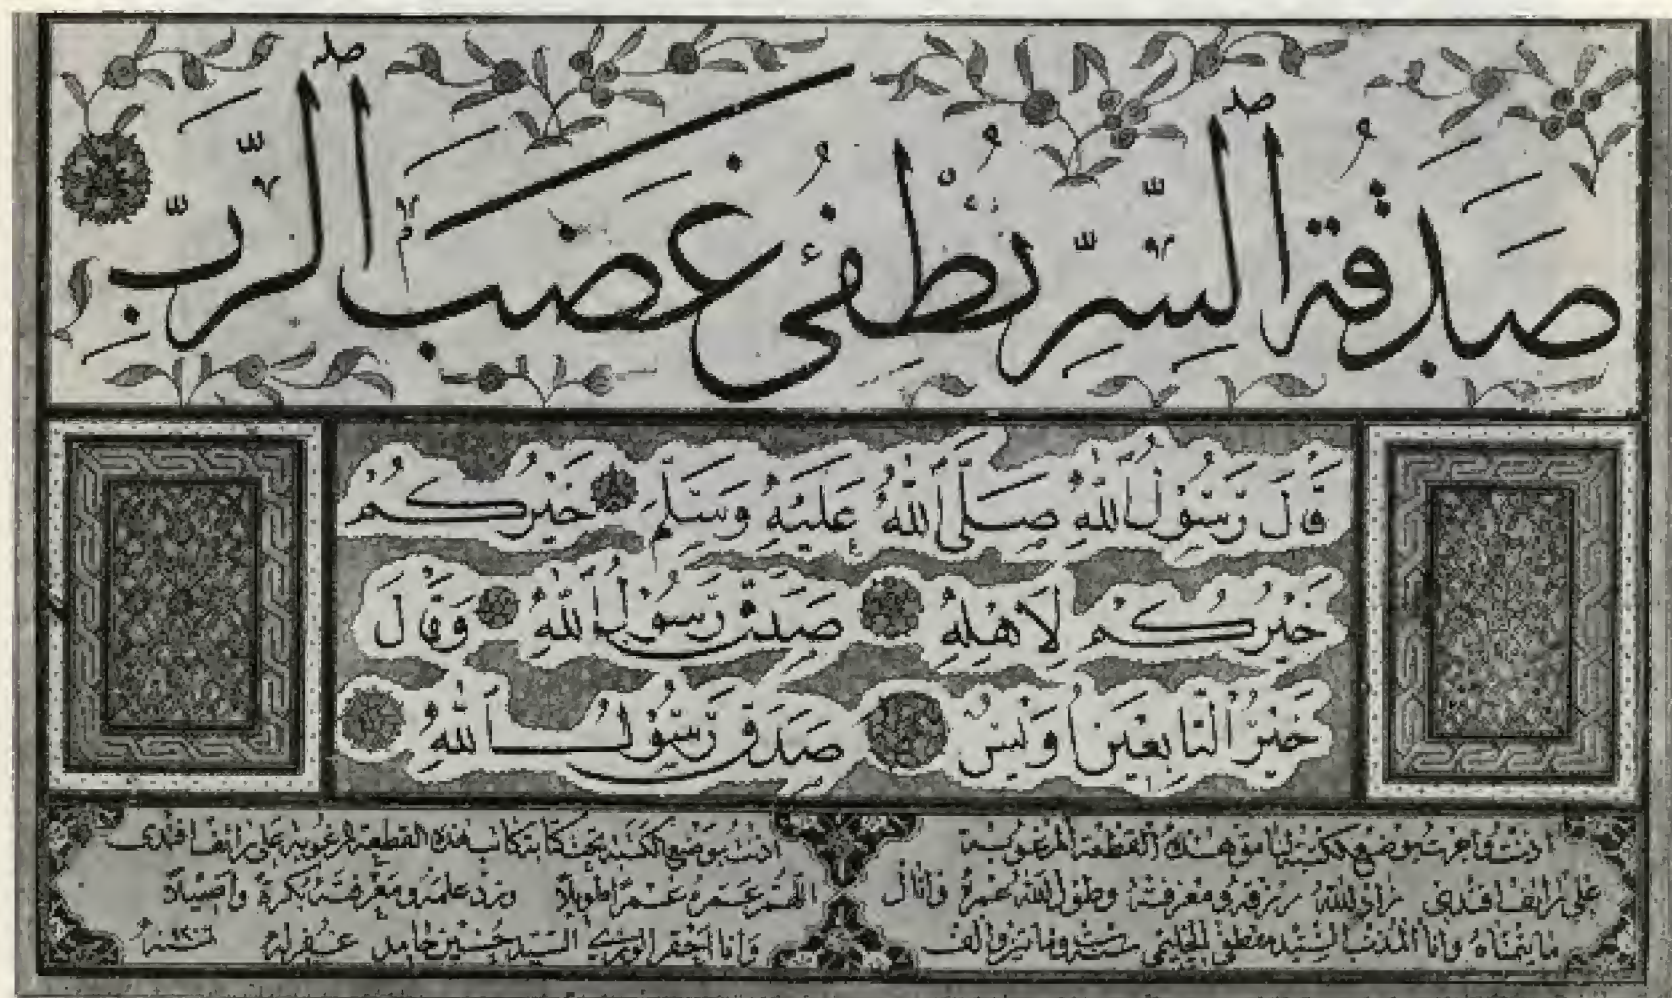 صَدَقَةُ السِّرِّ تُطْفِئُ غَضَبَ الرَّبِّ
قَالَ رَسُولُ اللّٰهِ صَلَّى اللّٰهُ عَلَيْهِ وَسَلَّمَ خَيْرُكُمْ
خَيْرُكُمْ لِاَهْلِهِ صَدَقَ رَسُولُ اللّٰهِ وَقَالَ
خَيْرُ التَّابِعِينَ اُوَيْسٌ صَدَقَ رَسُولُ اللّٰهِ
اذنت واجزت بوضع الكتبة لنامق هذه القطعة المرغوبة
على رائف افندى زاد الله رزقه ومعرفته وطول الله عمره وانال
ما يتمناه وانا المذنب السيد مصطفى الحليمى
اذنت بوضع الكتبة تحت كتابة كاتب هذه القطعة المرغوبة على رائف افندى
اللهم عمره عمرا طويلا وزد علمه ومعرفته بكرة واصيلا
وانا احقر الورى السيد حسين حامد غفر له